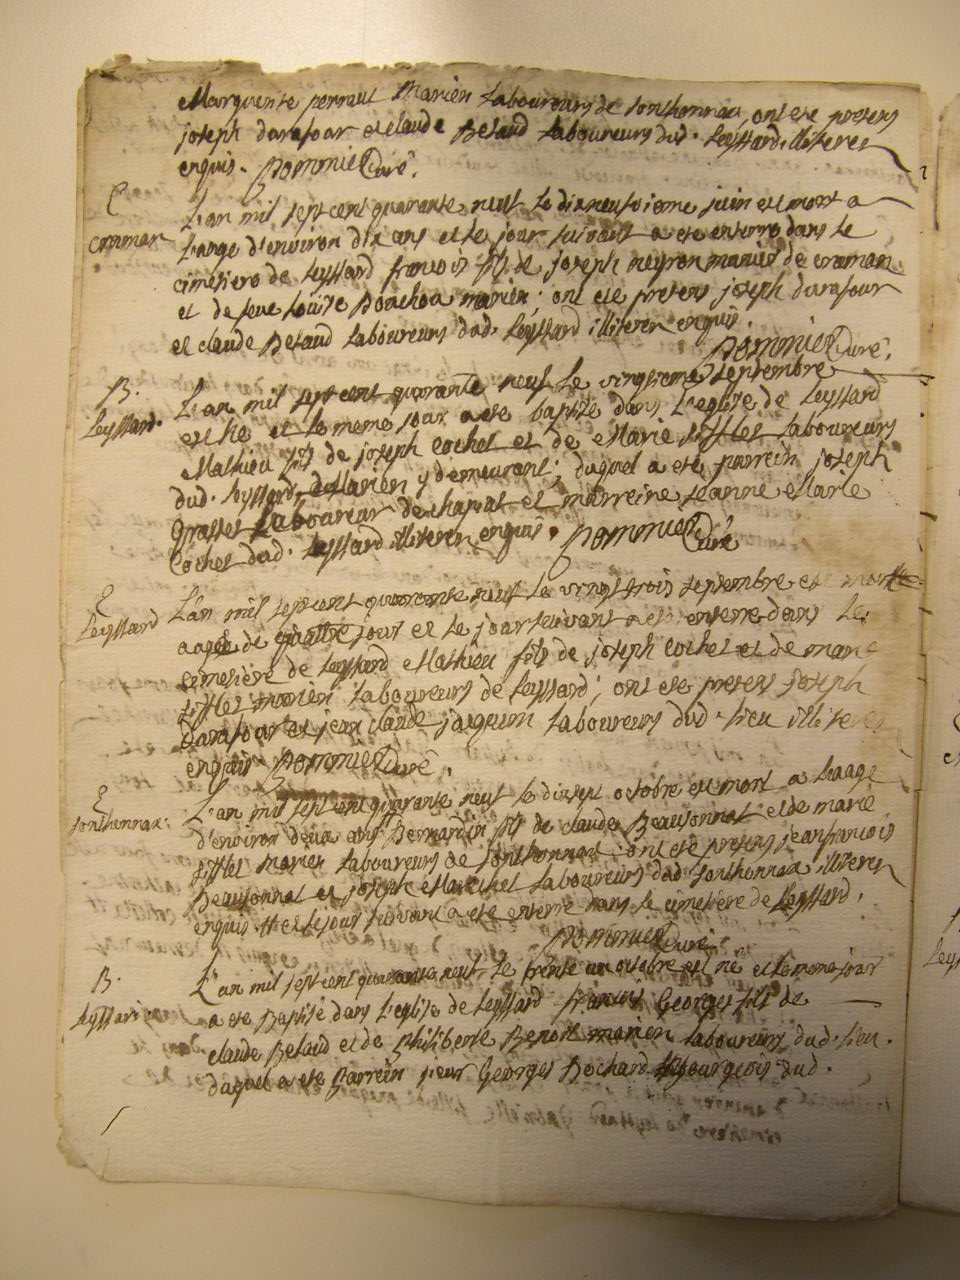 Marguerite perraut Mariés Laboureurs de sonthonnax, ont été presens
joseph darafour et claude Betaud Laboureurs dud. Leyssard illiterez
enquis. Pommier Curé.
L'an mil sept cent quarante neuf le dixneufvieme juin est mort a
craman
l'aage d'environ dix ans et le jour suivant a été enterré dans le
cimetiere de Leyssard francois fils de joseph neyron mariés de craman
et de feue Louise Bochon mariés: ont été presens joseph darafour
et claude Betaud Laboureurs dud. Leyssard illiterez enquis.
Pommier Curé.
B.
Leyssard.
L'an mil sept cent quarante neuf le vingtieme septembre
est né et le meme jour a été baptisé dans l'eglise de Leyssard
Mathieu fils de joseph Cochet et de Marie sifflet Laboureurs
dud. Leyssard, Mariés y demeurant; duquel a été parrein joseph
grasset Laboureur de chapiat et marreine jeanne Marie
Cochet dud. Leyssard illiterez enquis. Pommier Curé
Leyssard
L'an mil sept cent quarante neuf le vingt trois septembre est mort
aagé de quattre jour et le jour suivant a été enterré dans le
cimetière de Leyssard Mathieu fils de joseph cochet et de marie
sifflet mariés Laboureurs de Leyssard; ont été presens joseph
Darafour et jean claude jacquim Laboureurs dud. Lieu illiterez
enquis Pommier Curé.
sonthonnax.
L'an mil sept cent quarante neuf le dixsept octobre est mort a l'aage
d'environ deux ans Bernardin fils de claude Beausonnat et de marie
sifflet Mariés Laboureurs de sonthonnax: ont été presens jeanfrancois
Beausonnat et joseph Marechet Laboureurs dud sonthonnax illiterez
enquis. et le jour suivant a été enterré dans le cimetière de Leyssard.
Pommier Curé
B.
Leyssard
L'an mil sept cent quarante neuf le trente un octobre est né et le meme jour
a été Baptisé dans l'eglise de Leyssard francois Georges fils de
claude Betaud et de Philiberte Benoit mariés Laboureurs dud. lieu.
duquel a été Parrein sieur Georges Bochard Bourgeois dud.